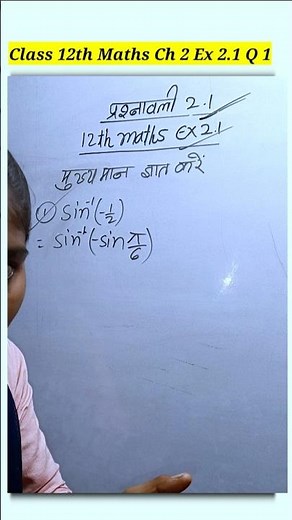 Class 12th Maths Ch 2 Ex 2.1 Q 1
प्रश्नावली 2.1
12th maths Ex 2.1
मुख्य मान ज्ञात करें
① sin⁻¹(-1/2)
= sin⁻¹(-sin π/6)